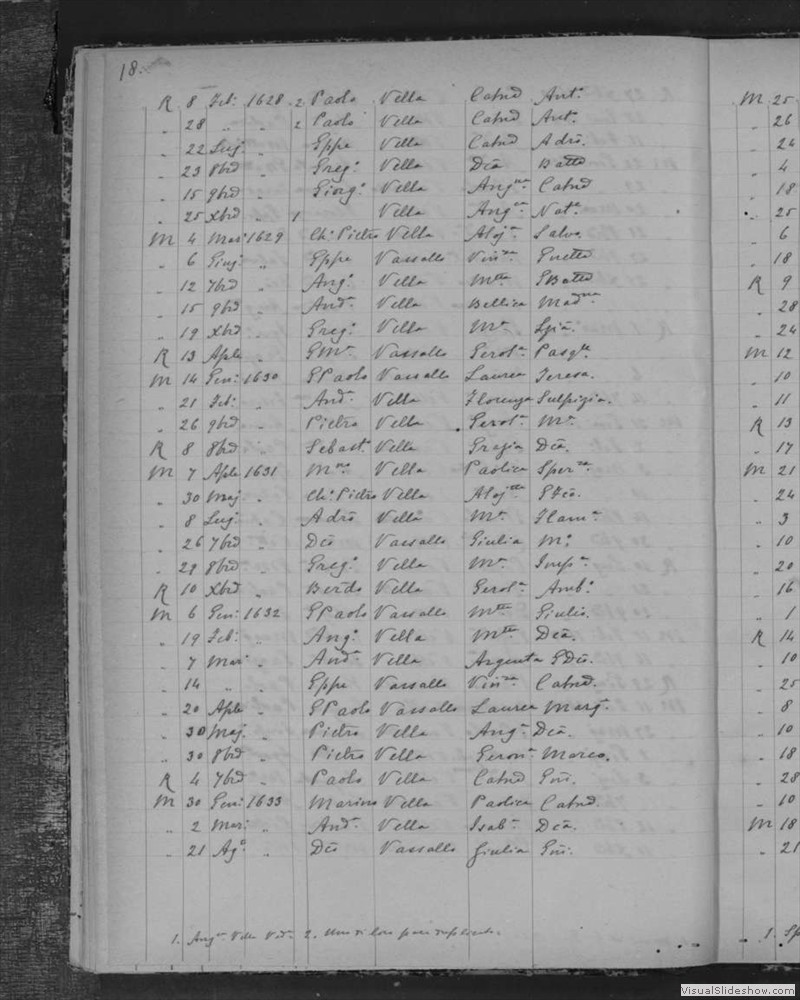 18.
R 8 Feb: 1628 2 Paolo Vella Catnd Ant.a
" 28 " " 2 Paolo Vella Catnd Ant.a
" 22 Lug: " Eppe Vella Catnd Adrō.
" 23 8brd " Greg.o Vella Dcā Batta
" 15 9brd " Giorg.o Vella Ang.ca Catnd
" 25 Xbrd " 1 Vella Ang.ca Nat.a
M 4 Mar: 1629 Ch: Pietro Vella Aloj.a Salva.
" 6 Giug: " Eppe Vassallo Vin.za
" 12 7brd " Ang.o Vella M.tta GBatta
" 15 9brd " And.a Vella Bellica Mad.na
" 19 Xbrd " Greg.o Vella M.a
R 13 Aple " GM.a Vassallo Gerol.a Pasq.le
M 14 Gen: 1630 GPaolo Vassallo Laurea Teresa.
" 21 Feb: " And.a Vella Florenza Sulpizia.
" 26 9brd " Pietro Vella Gerol.a M.a
R 8 8brd " Sebast.o Vella Grazia Dcā.
M 7 Aple 1631 M.no Vella Paolica Sper.za
" 30 Maj. " Ch: Pietro Vella Aloj.tta
" 8 Lug: " Adrō Vella M.a Flam.a
" 26 7brd " Dcō Vassallo Giulia M.o
" 29 8brd " Greg.o Vella M.a
R 10 Xbrd " Berdo Vella Gerol.a Amb.o
M 6 Gen: 1632 GPaolo Vassallo M.tta Giulio.
" 19 Feb: " Ang.o Vella M.tta Dcā.
" 7 Mar: " And.a Vella Argenta GDcō.
" 14 " " Eppe Vassallo Vin.za Catnd.
" 20 Aple " GPaolo Vassallo Laurea Marg.a
" 30 Maj. " Pietro Vella Ang.a Dcā.
" 30 8brd " Pietro Vella Geron.a Marco.
R 4 7brd " Paolo Vella Catnd
M 30 Gen: 1633 Marino Vella Paolica Catnd.
" 2 Mar: " And.a Vella Isab.a Dcā.
" 21 Ag.o " Dcō Vassallo Giulia
1. Ang.ca Vella Ved.a 2.
M 25
" 26
" 24
" 4
" 18
" 25
" 6
" 18
R 9
" 28
" 24
M 12
" 10
" 11
R 13
" 17
M 21
" 24
" 3
" 10
" 20
" 16
" 1
R 14
" 10
" 25
" 8
" 10
" 18
" 28
" 10
M 18
" 21
1. Sp
VisualSlideshow.com